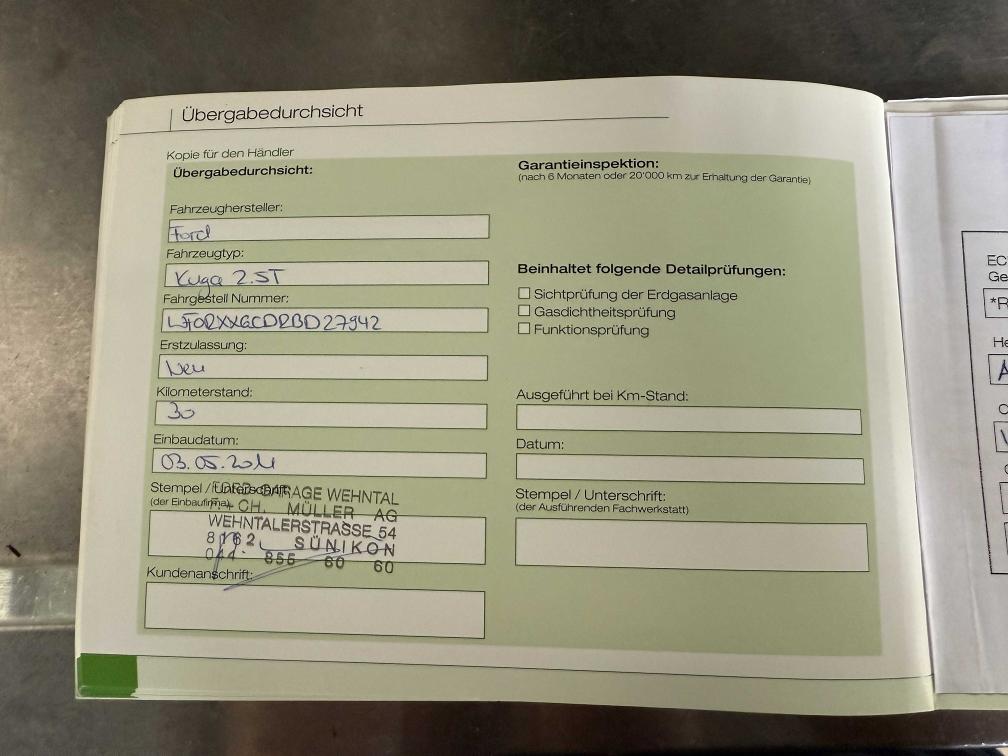 Übergabedurchsicht
Kopie für den Händler
Übergabedurchsicht:
Fahrzeughersteller:
Ford
Fahrzeugtyp:
Kuga 2.5T
Fahrgestell Nummer:
WF0RXXGCDRBD27942
Erstzulassung:
Neu
Kilometerstand:
30
Einbaudatum:
03.05.2011
Stempel / Unterschrift:
(der Einbaufirma)
FORD GARAGE WEHNTAL
F. + CH. MÜLLER AG
WEHNTALERSTRASSE 54
8162 SÜNIKON
044. 856 60 60
Kundenanschrift:
Garantieinspektion:
(nach 6 Monaten oder 20'000 km zur Erhaltung der Garantie)
Beinhaltet folgende Detailprüfungen:
Sichtprüfung der Erdgasanlage
Gasdichtheitsprüfung
Funktionsprüfung
Ausgeführt bei Km-Stand:
Datum:
Stempel / Unterschrift:
(der Ausführenden Fachwerkstatt)